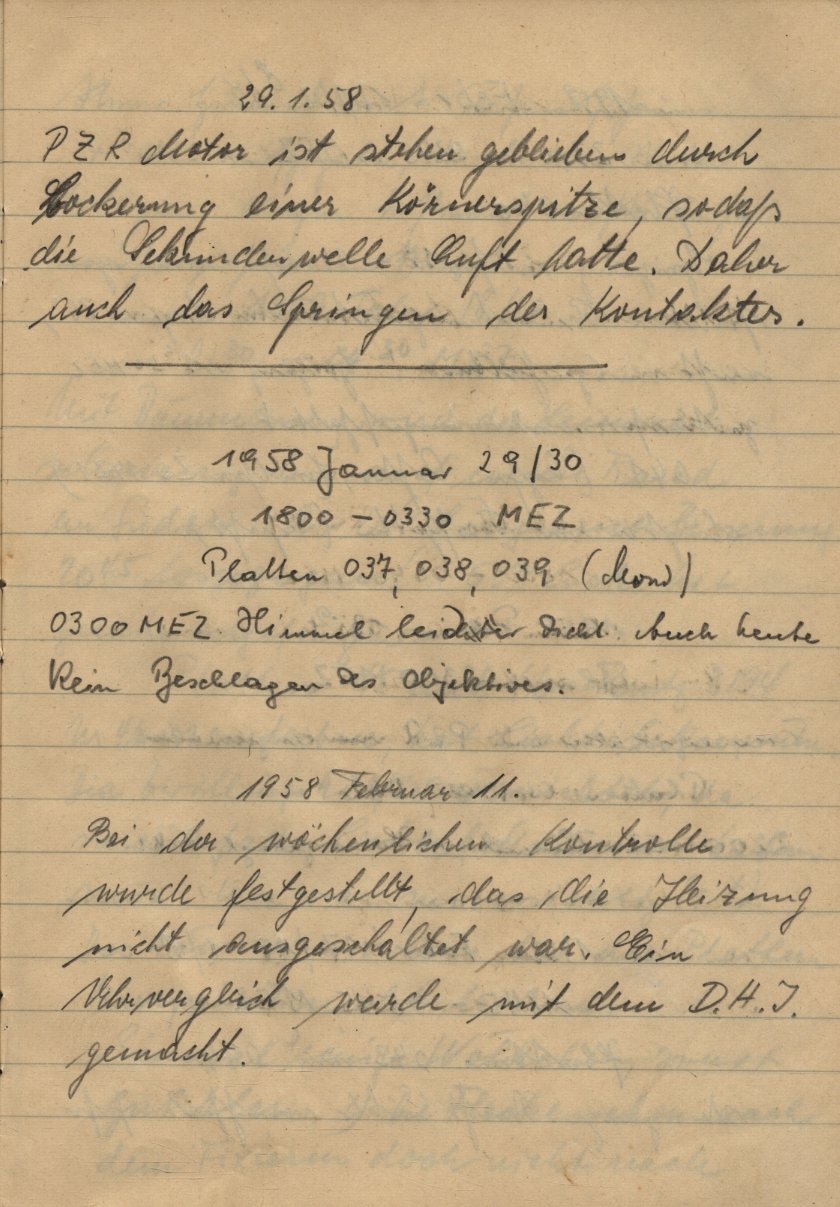 29.1.58
PZR Motor ist stehen geblieben durch
Lockerung einer Körnerspitze, sodaß
die Sekundenwelle Luft hatte. Daher
auch das Springen des Kontaktes.
1958 Januar 29/30
1800 – 0330 MEZ
Platten 037, 038, 039 (Mond)
0300 MEZ Himmel leichter Auch heute
Kein Beschlagen des Objektives.
1958 Februar 11.
Bei der wöchentlichen Kontrolle
wurde festgestellt, das die Heizung
nicht ausgeschaltet war. Ein
Uhrvergleich wurde mit dem D.H.I.
gemacht.